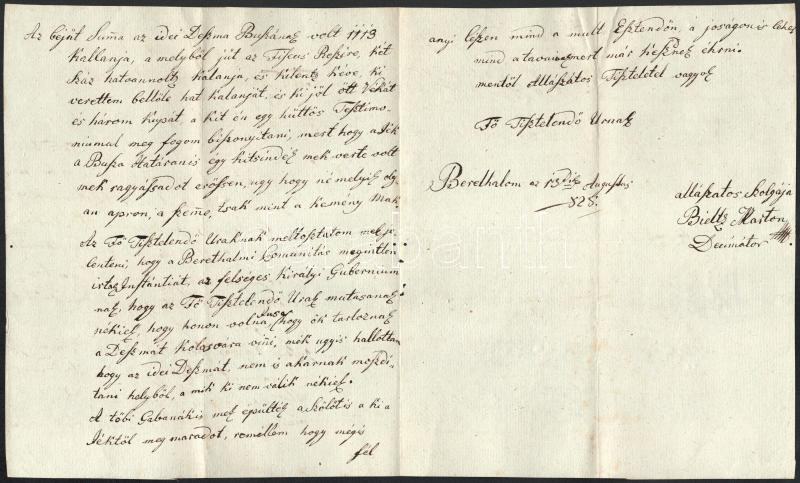 Az béjött Suma az idei Desma Buszának volt 1113
kallanja, a melyből jút az Fiscus Reszire, két
ház hatvannoltz kalanja, és kilentz kéve, ki
verettem bellöle hat kalanját, és ki jöl ött Vékát
és három kupát, a kit én egy hüttös Testimo-
niumal meg fogom bizonyitani, mert hogy a Jék
a Busza Határanis égy kitsindég mek verte volt
mek ragyássadot erössen, ugy hogy némelyik oly-
an apron, a szeme, tsak mint a kemény mak
Az Fő Tisztelendő Uraknak méltoztatom mek je-
lenteni, hogy a Berethalmi Comunitás megintlen
irtak Instántiát, az felséges királyi Gubernium
nak, hogy az Fő Tisztelendő Urak mutasanak
nékiek, hogy honon volna Jusa hogy ök tartoznak
a Deszmát Kolosvára vini, mek ugyis hallottam
hogy az idei Deszmát, nem is akárnak mozdi-
tani helyböl, a mik ki nem válik nékiek.
A töbi Gabanákis mek épültek a Szölöt is a ki a
Jéktöl meg maradot, remillem hogy mégis
fél
anyi leszen mind a mult Esztendön, a joságonis lehes
mind a tavai mert már kezdnek érni.
mentöl Allászatos Tisztelétel vagyok
Fő Tisztelendő Urnak
Berethalom az 13dik Augustus
828.
allázatos szolgája
Bieltz Marton
Decimátor